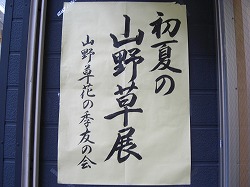 初夏の
山野草展
山野草花の季友の会